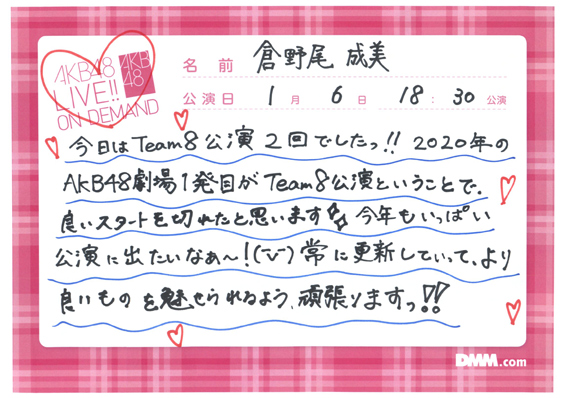 AKB48
LIVE!!
ON DEMAND
AKB
48
名前 倉野尾 成美
公演日 1月 6日 18:30公演
今日はTeam8公演2回でしたっ!! 2020年の
AKB48劇場1発目がTeam8公演ということで、
良いスタートを切れたと思います 今年もいっぱい
公演に出たいなぁ〜!(˘ᵕ˘) 常に更新していって、より
良いものを魅せられるよう、頑張りますっ!!
DMM.com